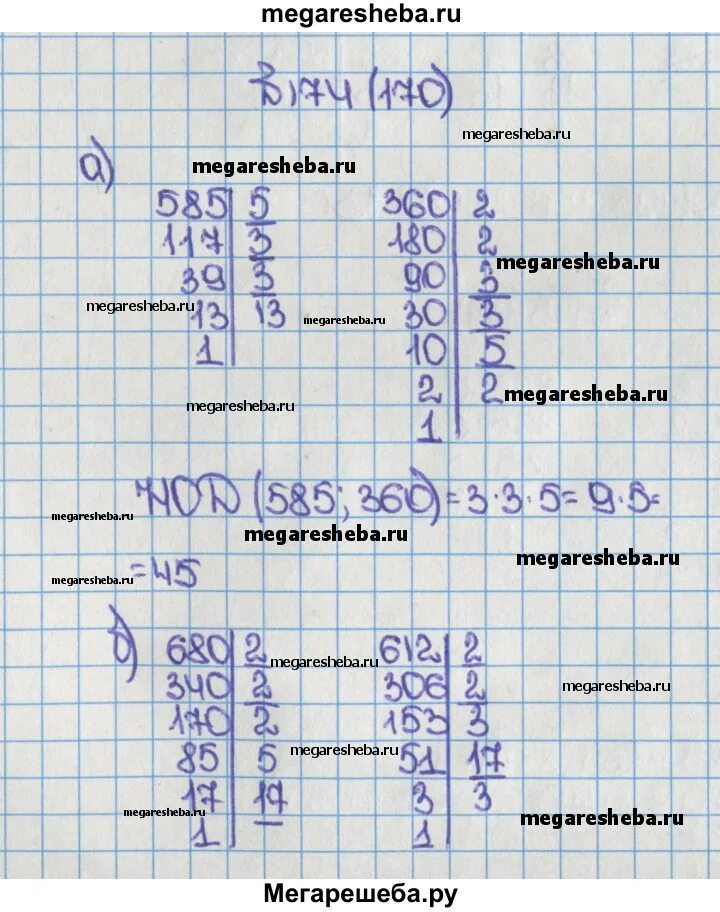 megaresheba.ru
В174 (170)
megaresheba.ru
а)
megaresheba.ru
585 | 5
117 | 3
39 | 3
13 | 13
1
360 | 2
180 | 2
90 | 3
30 | 3
10 | 5
2 | 2
1
megaresheba.ru
megaresheba.ru
megaresheba.ru
megaresheba.ru
megaresheba.ru
НОД (585; 360) = 3·3·5 = 9·5 =
megaresheba.ru
megaresheba.ru
megaresheba.ru
= 45
megaresheba.ru
б)
680 | 2
340 | 2
170 | 2
85 | 5
17 | 17
1
612 | 2
306 | 2
153 | 3
51 | 17
3 | 3
1
megaresheba.ru
megaresheba.ru
megaresheba.ru
megaresheba.ru
megaresheba.ru
Мегарешеба.ру